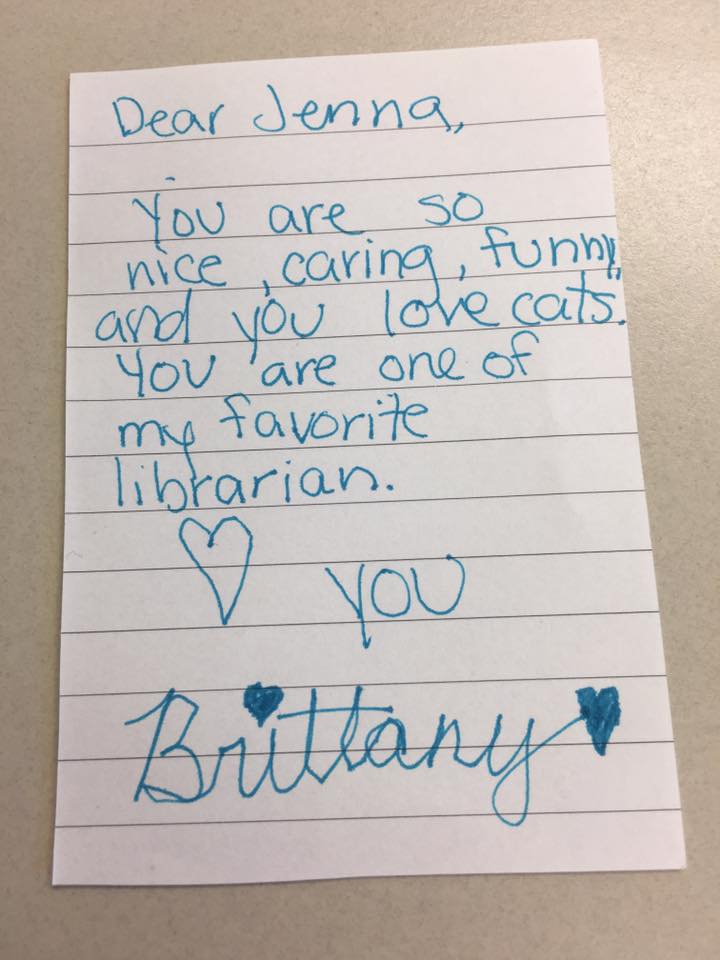 Dear Jenna,
You are so
nice, caring, funny,
and you love cats.
You are one of
my favorite
librarian.
♡ you
Brittany